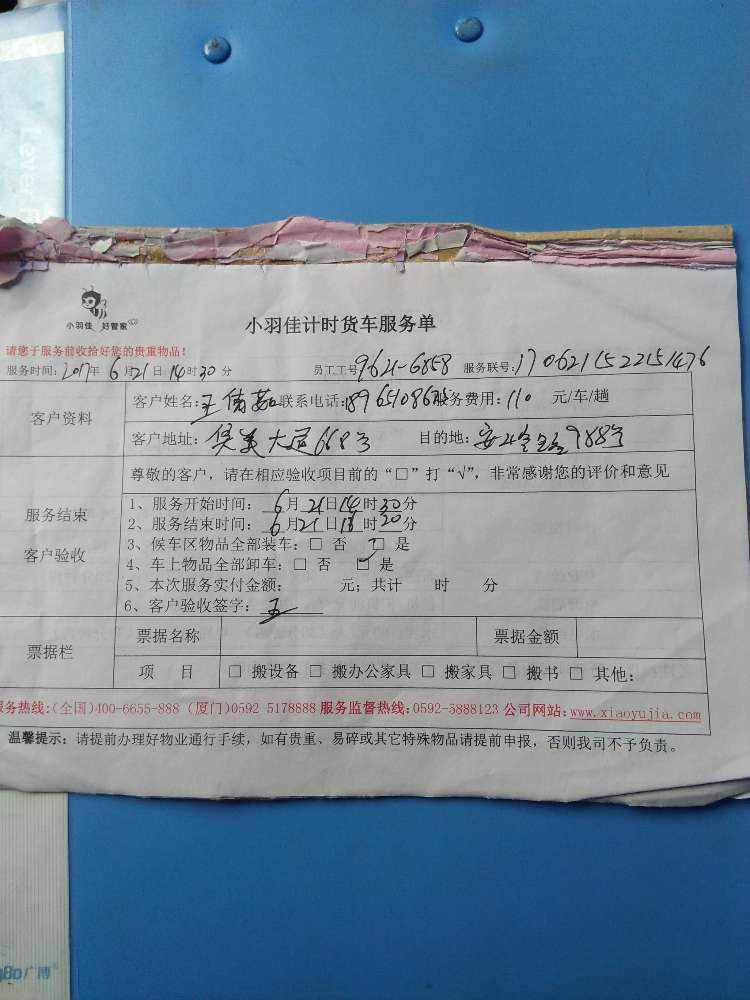 小羽佳 好管家
小羽佳计时货车服务单
请您于服务前收拾好您的贵重物品！
服务时间：2017年6月21日14时30分 员工工号9621-6858 服务联号：1706211522151476
客户资料
客户姓名：王 联系电话：189651086 服务费用：110 元/车/趟
客户地址：集美大道668号 目的地： 988号
服务结束
客户验收
尊敬的客户，请在相应验收项目前的“□”打“√”，非常感谢您的评价和意见
1、服务开始时间：6月21日14时30分
2、服务结束时间：6月21日 时20分
3、候车区物品全部装车：□ 否 □ 是
4、车上物品全部卸车：□ 否 □ 是
5、本次服务实付金额： 元；共计 时 分
6、客户验收签字：王
票据栏
票据名称 票据金额
项 目 □ 搬设备 □ 搬办公家具 □ 搬家具 □ 搬书 □ 其他：
服务热线：(全国)400-6655-888 (厦门)0592 5178888 服务监督热线：0592-5888123 公司网站：www.xiaoyujia.com
温馨提示：请提前办理好物业通行手续，如有贵重、易碎或其它特殊物品请提前申报，否则我司不予负责。
广博